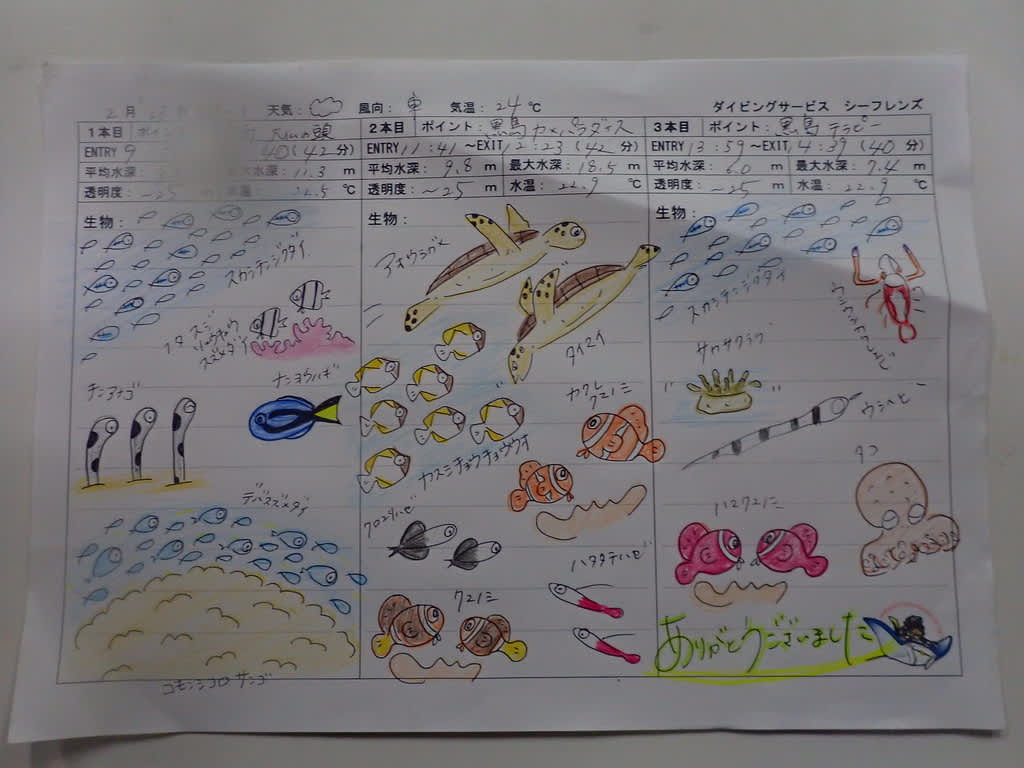 2月 天気： 風向： 東 気温： 24℃ ダイビングサービス シーフレンズ
1本目 ポイント の頭
ENTRY 9 40 (42分)
平均水深： 水深： 11.3 m
透明度： ~25 水温： .5 ℃
生物：
スカシテンジクダイ
フタスジリュウキュウスズメダイ
チンアナゴ
ナンヨウハギ
デバスズメダイ
コモンシコロサンゴ
2本目 ポイント： 黒島カメパラダイス
ENTRY 11:41 ～EXIT 12:23 (42分)
平均水深： 9.8 m 最大水深： 18.5 m
透明度： ~25 m 水温： 22.9 ℃
生物：
アオウミガメ
タイマイ
カクレクマノミ
カスミチョウチョウウオ
クロユリハゼ
ハタタテハゼ
クマノミ
3本目 ポイント： 黒島 テラピー
ENTRY 13:59 ～EXIT 14:39 (40分)
平均水深： 6.0 m 最大水深： 7.4 m
透明度： ~25 m 水温： 22.9 ℃
生物：
スカシテンジクダイ
ウミヘビ
タコ
ハマクマノミ
ありがとうございました